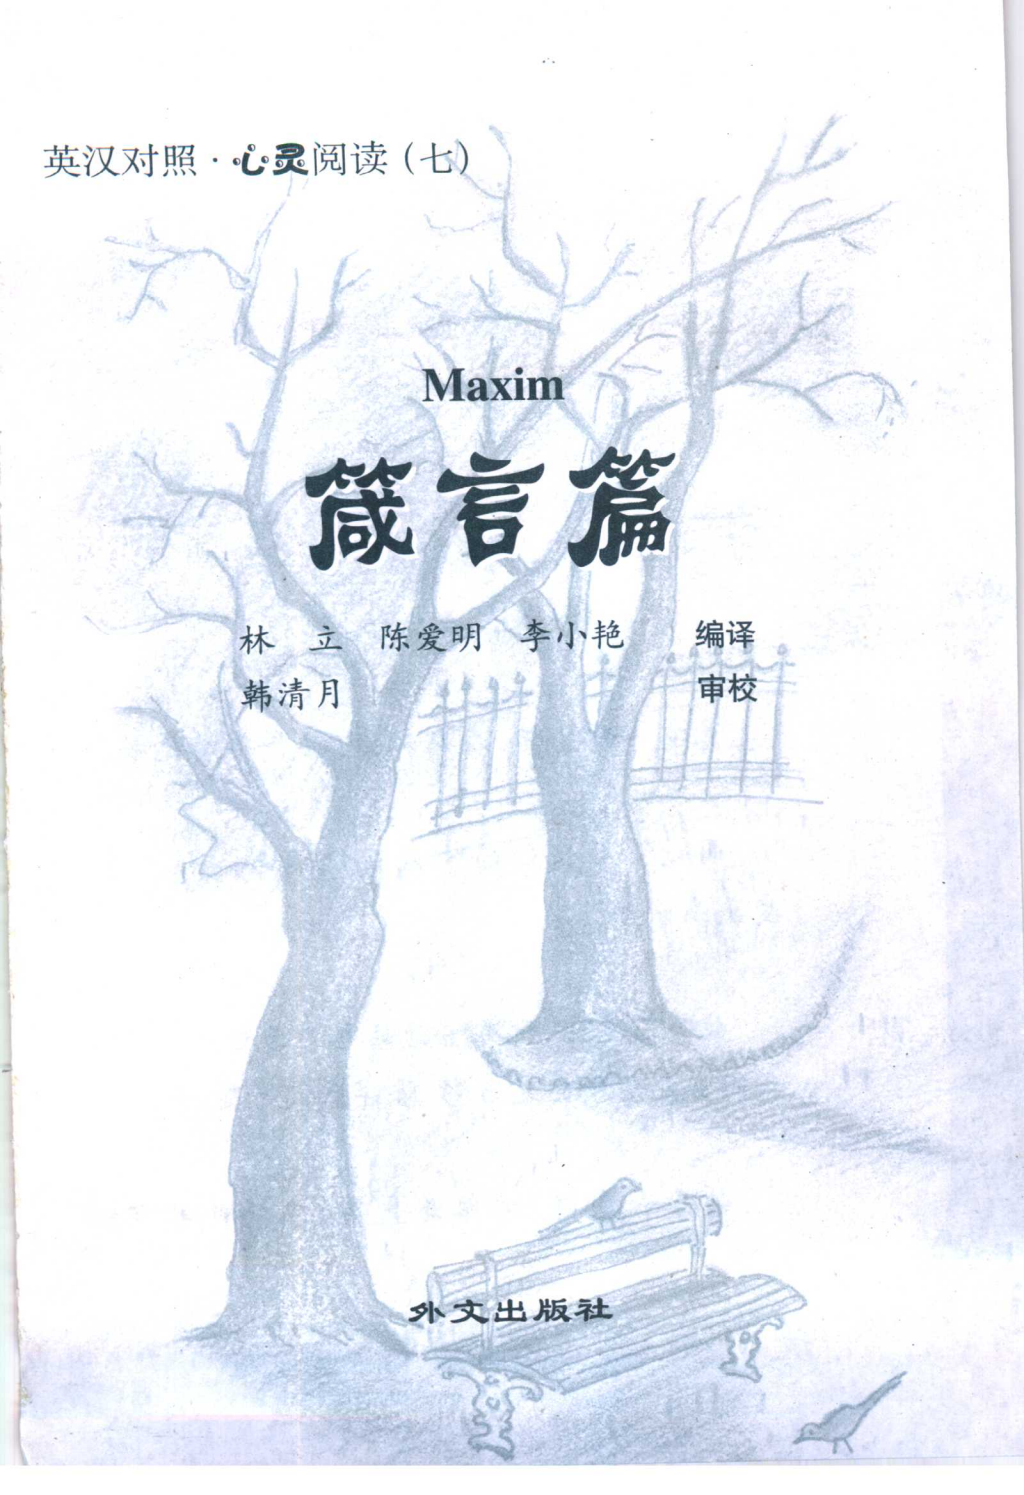 英汉对照·心灵阅读(七)
Maxim
箴言篇
林 立 陈爱明 李小艳 编译
韩清月 审校
外文出版社